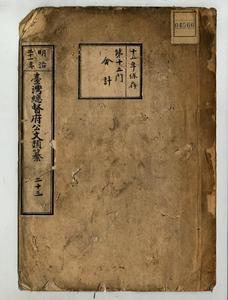 04560
明治
三十一年
臺灣總督府公文類纂
二十三
十五年保存
第十五門
會計